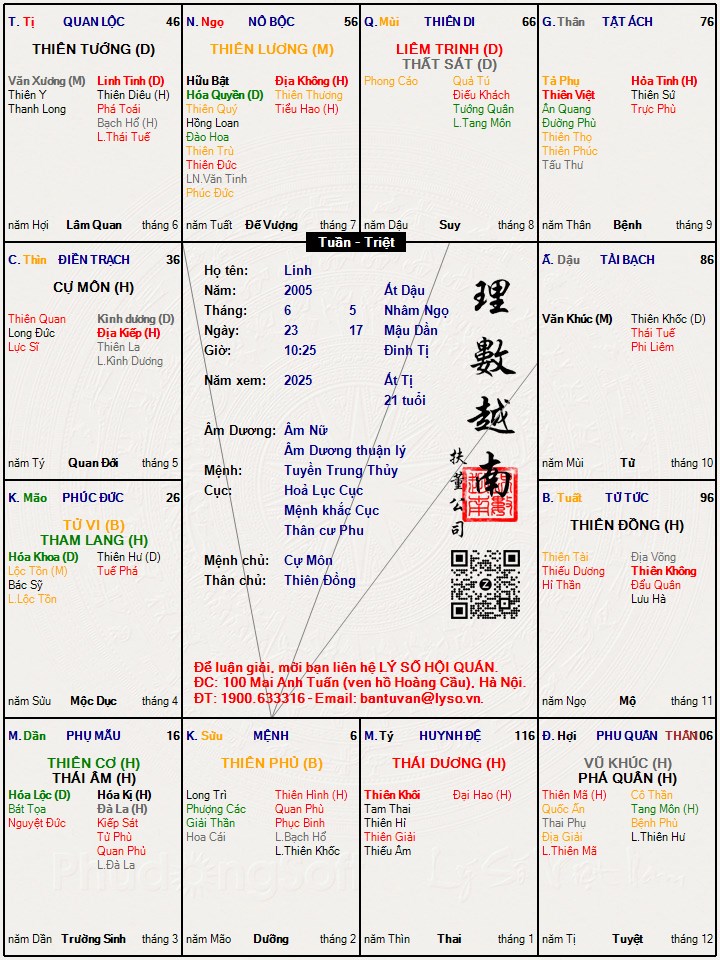 T. Tị QUAN LỘC 46
THIÊN TƯỚNG (D)
Văn Xương (M) Linh Tinh (D)
Thiên Y Thiên Diêu (H)
Thanh Long Phá Toái
Bạch Hổ (H)
L.Thái Tuế
năm Hợi Lâm Quan tháng 6
N. Ngọ NÔ BỘC 56
THIÊN LƯƠNG (M)
Hữu Bật Địa Không (H)
Hóa Quyền (D) Thiên Thương
Thiên Quý Tiểu Hao (H)
Hồng Loan
Đào Hoa
Thiên Trù
Thiên Đức
LN.Văn Tinh
Phúc Đức
năm Tuất Đế Vượng tháng 7
Q. Mùi THIÊN DI 66
LIÊM TRINH (D)
THẤT SÁT (D)
Phong Cáo Quả Tú
Điếu Khách
Tướng Quân
L.Tang Môn
năm Dậu Suy tháng 8
G. Thân TẬT ÁCH 76
Tả Phụ Hỏa Tinh (H)
Thiên Việt Thiên Sứ
Ân Quang Trực Phù
Đường Phù
Thiên Thọ
Thiên Phúc
Tấu Thư
năm Thân Bệnh tháng 9
Tuần - Triệt
C. Thìn ĐIỀN TRẠCH 36
CỰ MÔN (H)
Thiên Quan Kình dương (D)
Long Đức Địa Kiếp (H)
Lực Sĩ Thiên La
L.Kình Dương
năm Tý Quan Đới tháng 5
Họ tên: Linh
Năm: 2005 Ất Dậu
Tháng: 6 5 Nhâm Ngọ
Ngày: 23 17 Mậu Dần
Giờ: 10:25 Đinh Tị
Năm xem: 2025 Ất Tị
21 tuổi
Âm Dương: Âm Nữ
Âm Dương thuận lý
Mệnh: Tuyền Trung Thủy
Cục: Hoả Lục Cục
Mệnh khắc Cục
Thân cư Phu
Mệnh chủ: Cự Môn
Thân chủ: Thiên Đồng
理數越南
扶董公司
Để luận giải, mời bạn liên hệ LÝ SỐ HỘI QUÁN.
ĐC: 100 Mai Anh Tuấn (ven hồ Hoàng Cầu), Hà Nội.
ĐT: 1900.633316 - Email: bantuvan@lyso.vn.
Ấ. Dậu TÀI BẠCH 86
Văn Khúc (M) Thiên Khốc (D)
Thái Tuế
Phi Liêm
năm Mùi Tử tháng 10
K. Mão PHÚC ĐỨC 26
TỬ VI (B)
THAM LANG (H)
Hóa Khoa (D) Thiên Hư (D)
Lộc Tồn (M) Tuế Phá
Bác Sỹ
L.Lộc Tồn
năm Sửu Mộc Dục tháng 4
B. Tuất TỬ TỨC 96
THIÊN ĐỒNG (H)
Thiên Tài Địa Võng
Thiếu Dương Thiên Không
Hỉ Thần Đẩu Quân
Lưu Hà
năm Ngọ Mộ tháng 11
M. Dần PHỤ MẪU 16
THIÊN CƠ (H)
THÁI ÂM (H)
Hóa Lộc (D) Hóa Kị (H)
Bát Tọa Đà La (H)
Nguyệt Đức Kiếp Sát
Tử Phù
Quan Phủ
L.Đà La
năm Dần Trường Sinh tháng 3
K. Sửu MỆNH 6
THIÊN PHỦ (B)
Long Trì Thiên Hình (H)
Phượng Các Quan Phù
Giải Thần Phục Binh
Hoa Cái L.Bạch Hổ
L.Thiên Khốc
năm Mão Dưỡng tháng 2
M. Tý HUYNH ĐỆ 116
THÁI DƯƠNG (H)
Thiên Khôi Đại Hao (H)
Tam Thai
Thiên Hỉ
Thiên Giải
Thiếu Âm
năm Thìn Thai tháng 1
Đ. Hợi PHU QUÂN THÂN 106
VŨ KHÚC (H)
PHÁ QUÂN (H)
Thiên Mã (H) Cô Thần
Quốc Ấn Tang Môn (H)
Thai Phụ Bệnh Phù
Địa Giải L.Thiên Hư
L.Thiên Mã
năm Tị Tuyệt tháng 12